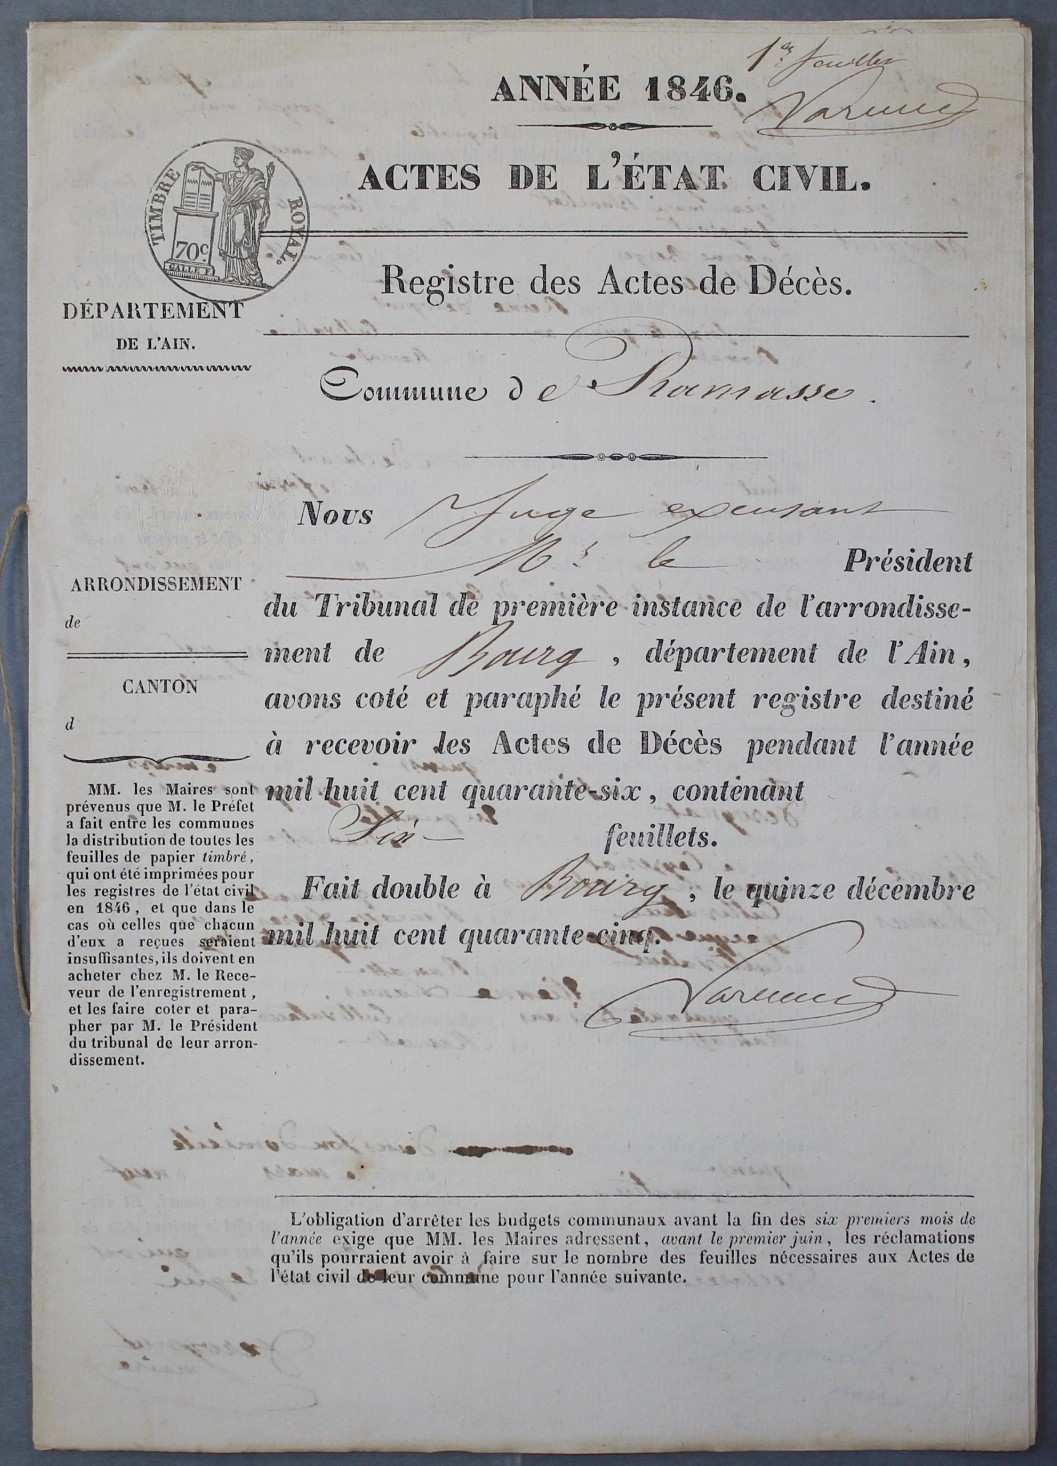 1er feuillet
ANNÉE 1846.
ACTES DE L'ÉTAT CIVIL.
TIMBRE ROYAL.
70c.
Registre des Actes de Décès.
DÉPARTEMENT
DE L'AIN.
Commune de Ramasse.
Nous Juge excusant
Mr le Président
du Tribunal de première instance de l'arrondisse-
ment de Bourg, département de l'Ain,
avons coté et paraphé le présent registre destiné
à recevoir les Actes de Décès pendant l'année
mil huit cent quarante-six, contenant
Six feuillets.
Fait double à Bourg, le quinze décembre
mil huit cent quarante-cinq.
ARRONDISSEMENT
de
CANTON
d
MM. les Maires sont
prévenus que M. le Préfet
a fait entre les communes
la distribution de toutes les
feuilles de papier timbré,
qui ont été imprimées pour
les registres de l'état civil
en 1846, et que dans le
cas où celles que chacun
d'eux a reçues seraient
insuffisantes, ils doivent en
acheter chez M. le Rece-
veur de l'enregistrement,
et les faire coter et para-
pher par M. le Président
du tribunal de leur arron-
dissement.
L'obligation d'arrêter les budgets communaux avant la fin des six premiers mois de
l'année exige que MM. les Maires adressent, avant le premier juin, les réclamations
qu'ils pourraient avoir à faire sur le nombre des feuilles nécessaires aux Actes de
l'état civil de leur commune pour l'année suivante.